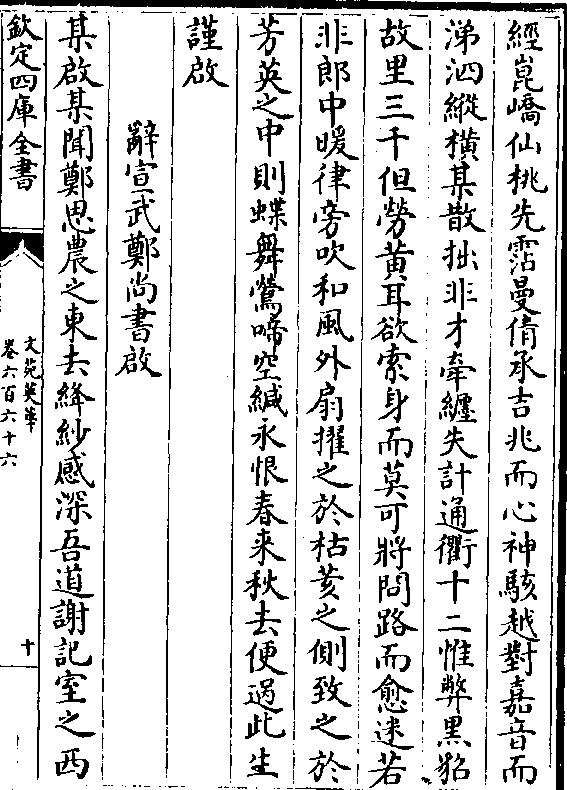 經崑嶠仙桃先霑曼倩承吉兆而心神駭越對嘉音而
涕泗縱橫某散拙非才牽纏失計通衢十二惟弊黑貂
故里三千但勞黃耳欲索身而莫可將問路而愈迷若
非郎中暖律旁吹和風外扇擢之於枯荄之側致之於
芳英之中則蝶舞鶯啼空緘永恨春来秋去便過此生
謹啟
辭宣武鄭尚書啟
某啟某聞鄭思農之東去絳紗感深吾道謝記室之西
欽定四庫全書
文苑英華
卷六百六十六
十